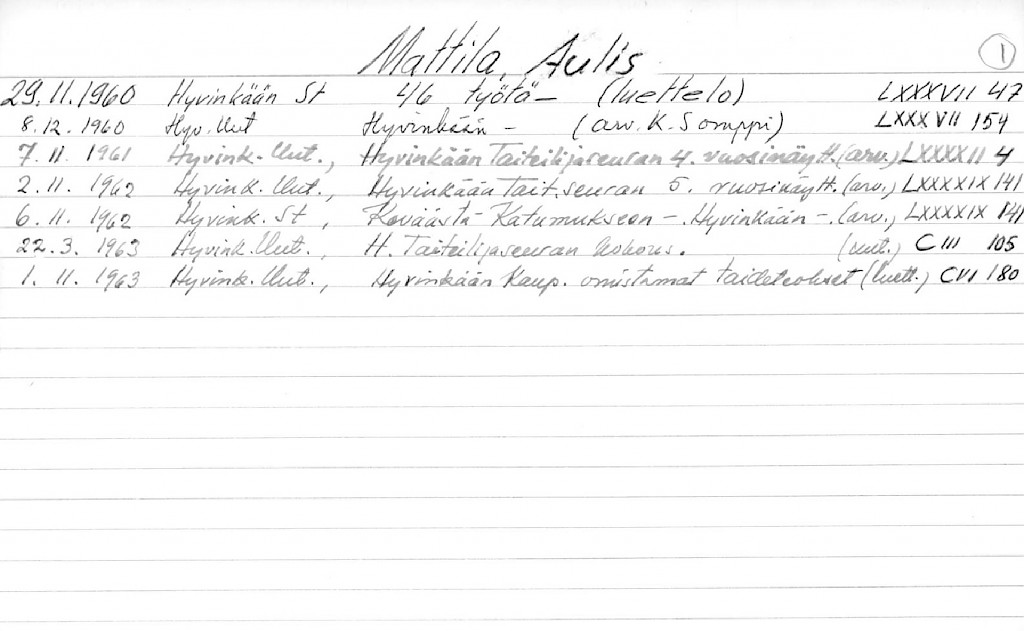 Mattila, Aulis
1
29.11.1960 Hyvinkään St 46 työtä – (luettelo) LXXXVII 47
8.12.1960 Hyv. Uut Hyvinkään – (arv. K. Somppi) LXXXVII 154
7.11.1961 Hyvink. Uut., Hyvinkään Taiteilijaseuran 4. vuosinäytt. (arv.) LXXXXII 4
2.11.1962 Hyvink. Uut., Hyvinkään Tait.seuran 5. vuosinäytt. (arv.) LXXXXIX 141
6.11.1962 Hyvink. St, Keväästä Katumukseen – Hyvinkään –. (arv.) LXXXXIX 141
22.3.1963 Hyvink. Uut., H. Taiteilijaseuran kokous. (uut.) CIII 105
1.11.1963 Hyvink. Uut., Hyvinkään Kaup. omistamat taideteokset (luett.) CVI 180